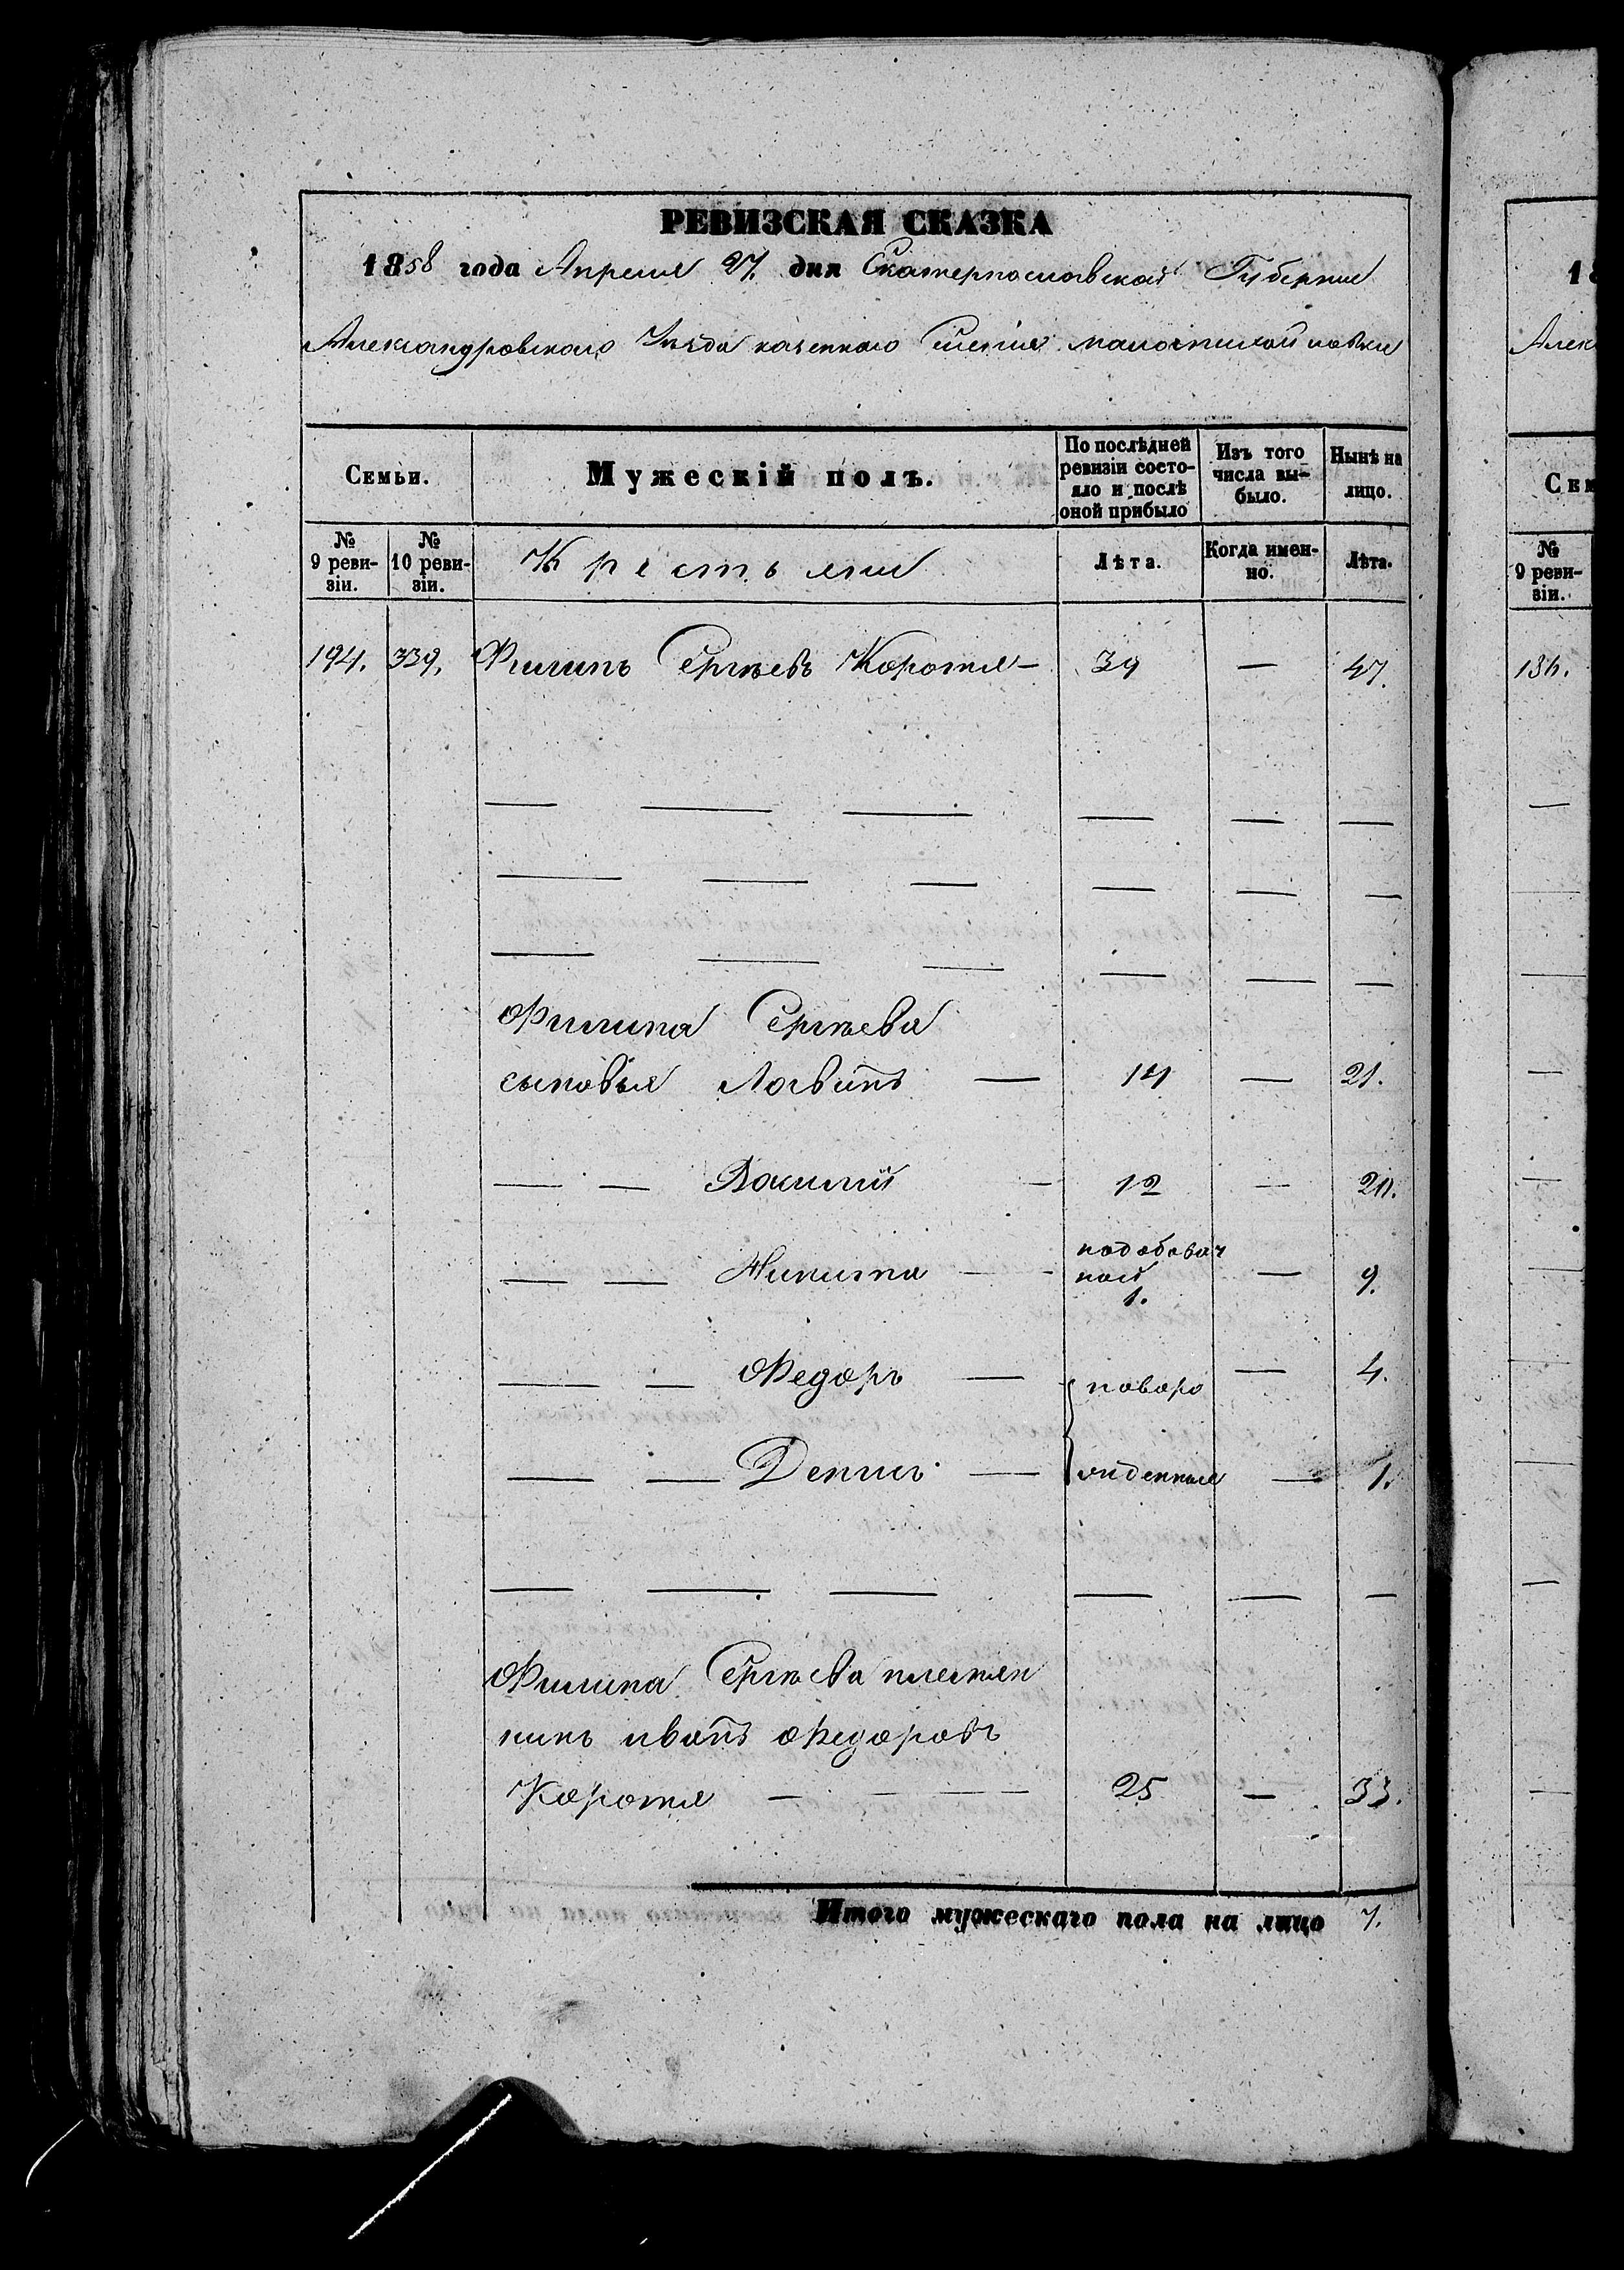 РЕВИЗСКАЯ СКАЗКА
1858 года Апреля 27 дня Екатеринославской Губернии
Александровского Уезда казенного Селения маломихайловки
Семьи.
Мужескій полъ.
По послѣдней ревизіи состо-
яло и послѣ
оной прибыло
Изъ того
числа вы-
было.
Нынѣ на
лицо.
№
9 реви-
зіи.
№
10 реви-
зіи.
Крестьяне
Лѣта.
Когда имен-
но.
Лѣта.
194. 339. Филипъ Сергѣевъ Коротя — 39 — 47.
— — — — — —
— — — — — —
— — — — — —
Филипа Сергѣева
сыновья Логвинъ — 14 — 21.
— — Василий — 12 — 20.
— — Никита — 1. — 9.
— — Федоръ — новоро — 4.
— — Денисъ — жденные — 1.
— — — — — —
Филипа Сергѣева племян
никъ иванъ Федоровъ
Коротя — — — 25 — 33.
Итого мужескаго пола на лицо 7.
18
Алек
Сем
№
9 реви-
зіи.
136.